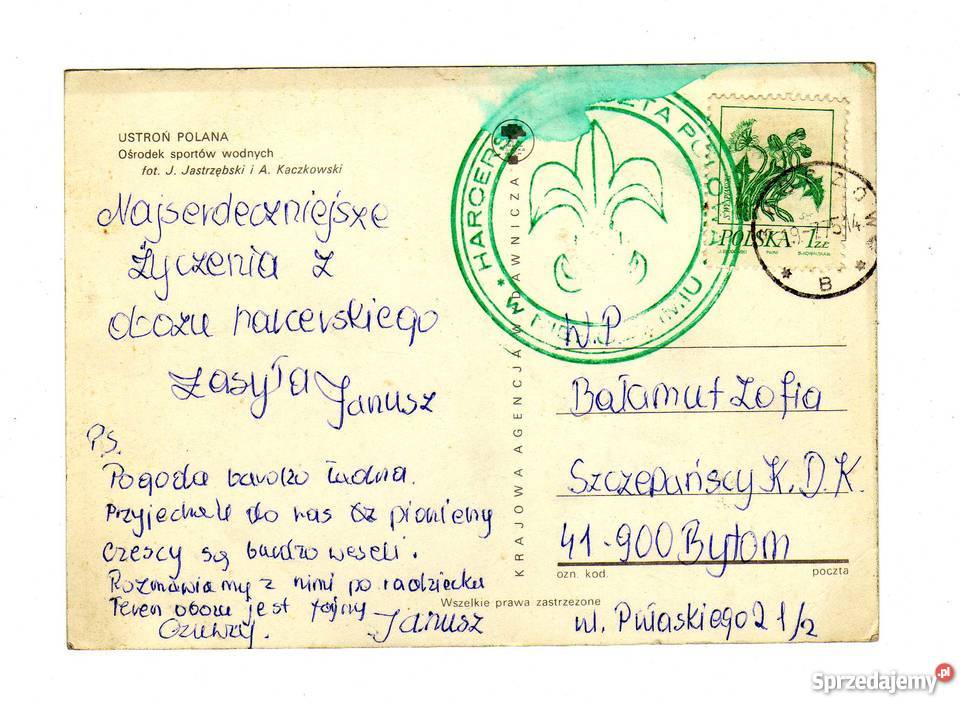 USTROŃ POLANA
Ośrodek sportów wodnych
fot. J. Jastrzębski i A. Kaczkowski
Najserdeczniejsze
życzenia z
obozu harcerskiego
zasyła Janusz
PS.
Pogoda bardzo ładna.
Przyjechali do nas pionierzy
czescy są bardzo weseli.
Rozmawiamy z nimi po radziecku
Teren obozu jest fajny
Czuwaj.
Janusz
KRAJOWA AGENCJA WYDAWNICZA
Wszelkie prawa zastrzeżone
* HARCERS
CZTA POLO
POLSKA 1 ZŁ
B
W.P.
Bałamut Zofia
Szczepańscy K.D.K.
41-900 Bytom
ozn. kod. poczta
ul. Pułaskiego 21/2
Sprzedajemy.pl